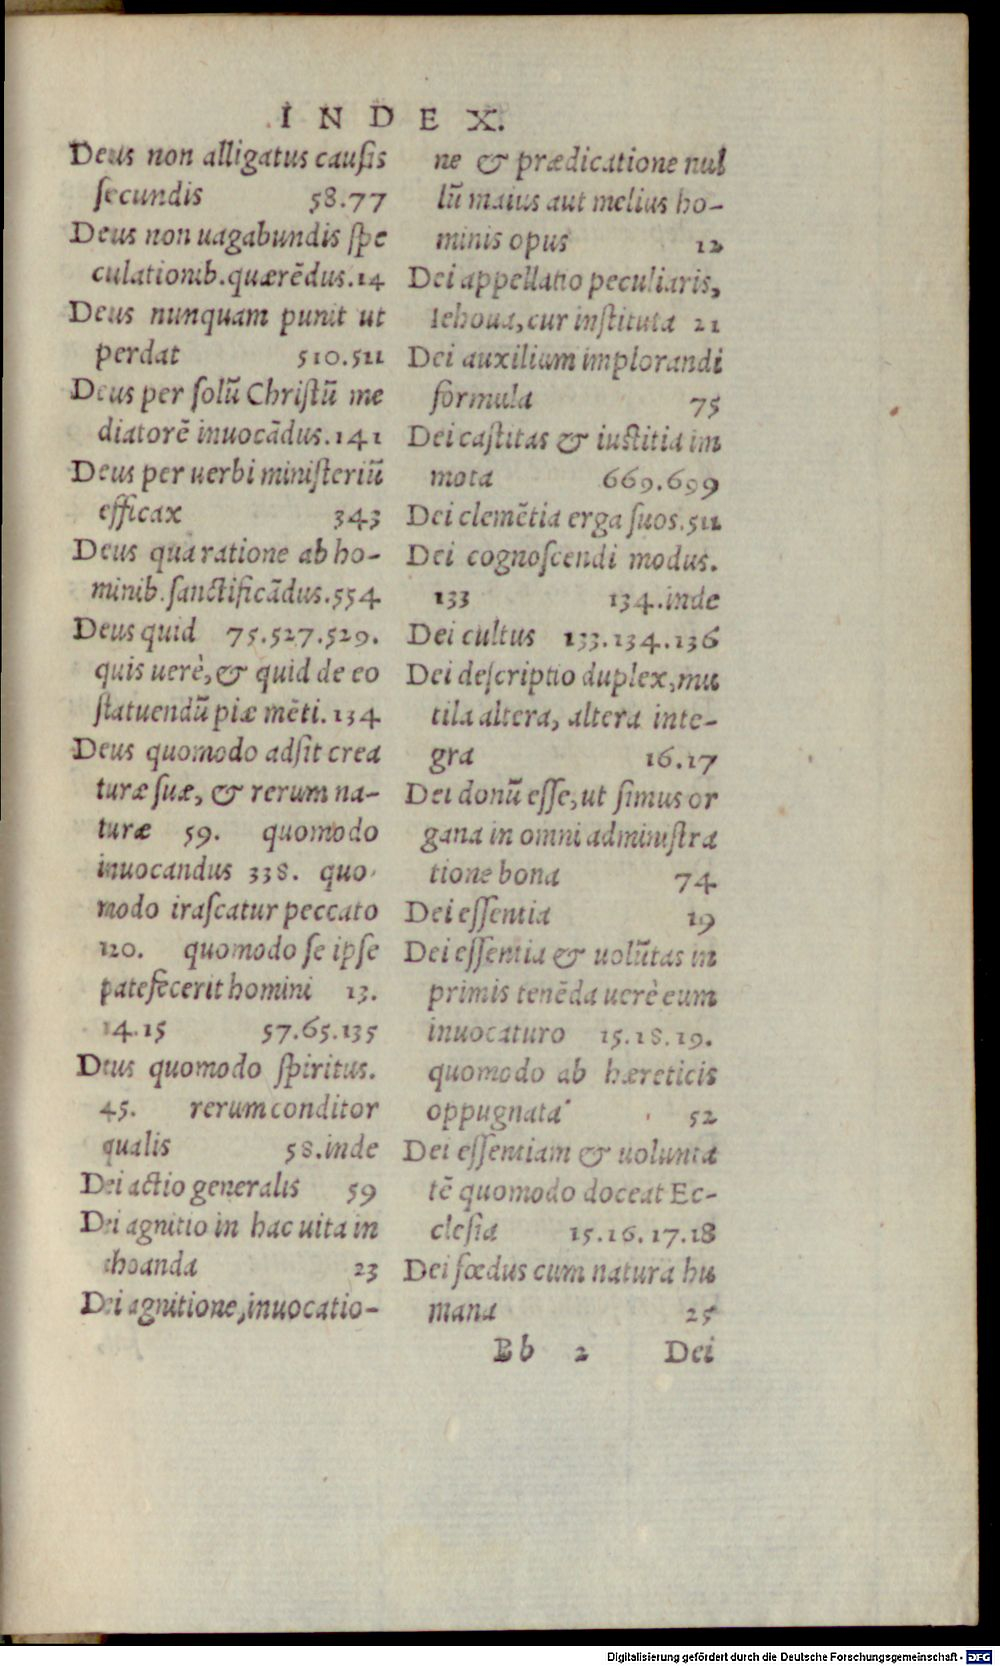 INDEX.
Deus non alligatus causis
secundis 58.77
Deus non uagabundis spe
culationib.quærẽdus.14
Deus nunquam punit ut
perdat 510.511
Deus per solũ Christũ me
diatorẽ inuocãdus.141
Deus per uerbi ministeriũ
efficax 343
Deus qua ratione ab ho-
minib.sanctificãdus.554
Deus quid 75.527.529.
quis uerè, & quid de eo
statuendũ piæ mẽti.134
Deus quomodo adsit crea
turæ suæ, & rerum na-
turæ 59. quomodo
inuocandus 338. quo
modo irascatur peccato
120. quomodo se ipse
patefecerit homini 13.
14.15 57.65.135
Deus quomodo spiritus.
45. rerum conditor
qualis 58.inde
Dei actio generalis 59
Dei agnitio in hac uita in
choanda 23
Dei agnitione, inuocatio-
ne & prædicatione nul
lũ maius aut melius ho-
minis opus 12
Dei appellatio peculiaris,
Iehoua, cur instituta 21
Dei auxilium implorandi
formula 75
Dei castitas & iustitia im
mota 669.699
Dei clemẽtia erga suos.511
Dei cognoscendi modus.
133 134.inde
Dei cultus 133.134.136
Dei descriptio duplex, mu
tila altera, altera inte-
gra 16.17
Dei donũ esse, ut simus or
gana in omni administra
tione bona 74
Dei essentia 19
Dei essentia & uolũtas in
primis tenẽda uerè eum
inuocaturo 15.18.19.
quomodo ab hæreticis
oppugnata 52
Dei essentiam & uolunta
tẽ quomodo doceat Ec-
clesia 15.16.17.18
Dei fœdus cum natura hu
mana 25
Bb 2 Dei
Digitalisierung gefördert durch die Deutsche Forschungsgemeinschaft - DFG